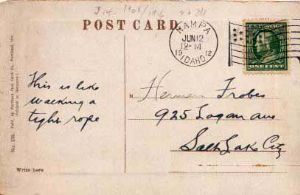 POST CARD.
NAMPA
JUN 12
2-M
IDAHO
ONE CENT
This is like
walking a
tight rope
Herman Frobes
925 Logan ave
Salt Lake City
Write here